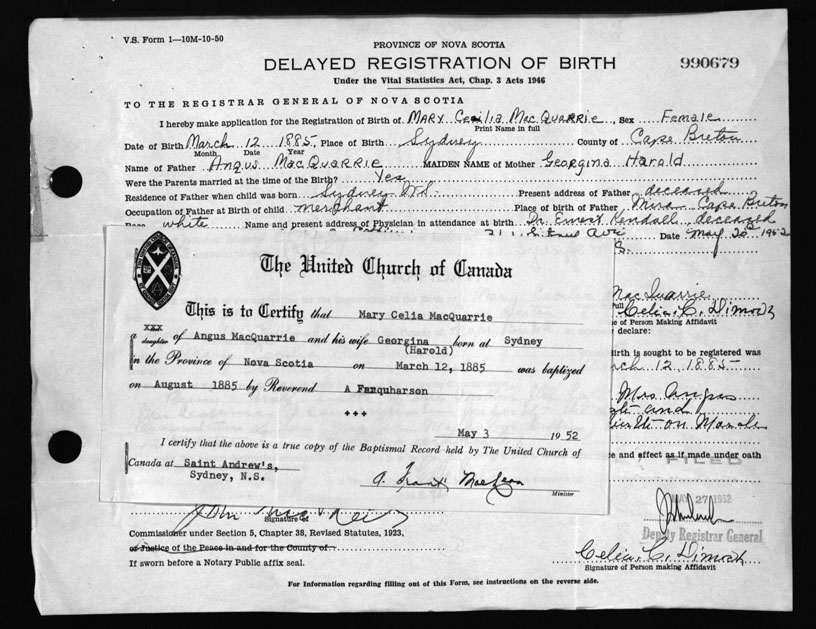 V.S. Form 1—10M-10-50
PROVINCE OF NOVA SCOTIA
DELAYED REGISTRATION OF BIRTH
990679
Under the Vital Statistics Act, Chap. 3 Acts 1946
TO THE REGISTRAR GENERAL OF NOVA SCOTIA
I hereby make application for the Registration of Birth of MARY Cecilia MacQuarrie, Sex Female
Print Name in full
Date of Birth March 12 1885, Place of Birth Sydney County of Cape Breton
Month Date Year
Name of Father Angus MacQuarrie MAIDEN NAME of Mother Georgina Harold
Were the Parents married at the time of the Birth? Yes
Residence of Father when child was born Sydney N.S. Present address of Father deceased
Occupation of Father at Birth of child merchant Place of birth of Father Mira Cape Breton
Race white Name and present address of Physician in attendance at birth Dr. Ernest Kendall deceased
Date May 20 1952
The United Church of Canada
This is to Certify that Mary Celia MacQuarrie
a xxx daughter of Angus MacQuarrie and his wife Georgina (Harold) born at Sydney
in the Province of Nova Scotia on March 12, 1885 was baptized
on August 1885 by Reverend A Farquharson
+++
May 3 1952
I certify that the above is a true copy of the Baptismal Record held by The United Church of
Canada at Saint Andrew's,
Sydney, N.S.
A. Frank MacLean
Minister
MacQuarrie
Celia C. Dimock
e of Person Making Affidavit
declare:
irth is sought to be registered was
rch 12 1885
Mrs. Angus
and
on March
ce and effect as if made under oath
FILED
MAY 27 1952
Deputy Registrar General
Signature of
Commissioner under Section 5, Chapter 38, Revised Statutes, 1923,
or Justice of the Peace in and for the County of
If sworn before a Notary Public affix seal.
Celia C. Dimock
Signature of Person making Affidavit
For Information regarding filling out of this Form, see instructions on the reverse side.